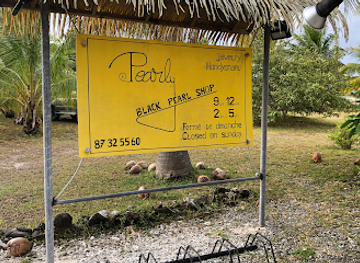 Pearly
Jewelry
Handycraft
BLACK PEARL SHOP
9. 12.
2. 5.
Fermé le dimanche
Closed on sunday
87 32 55 60